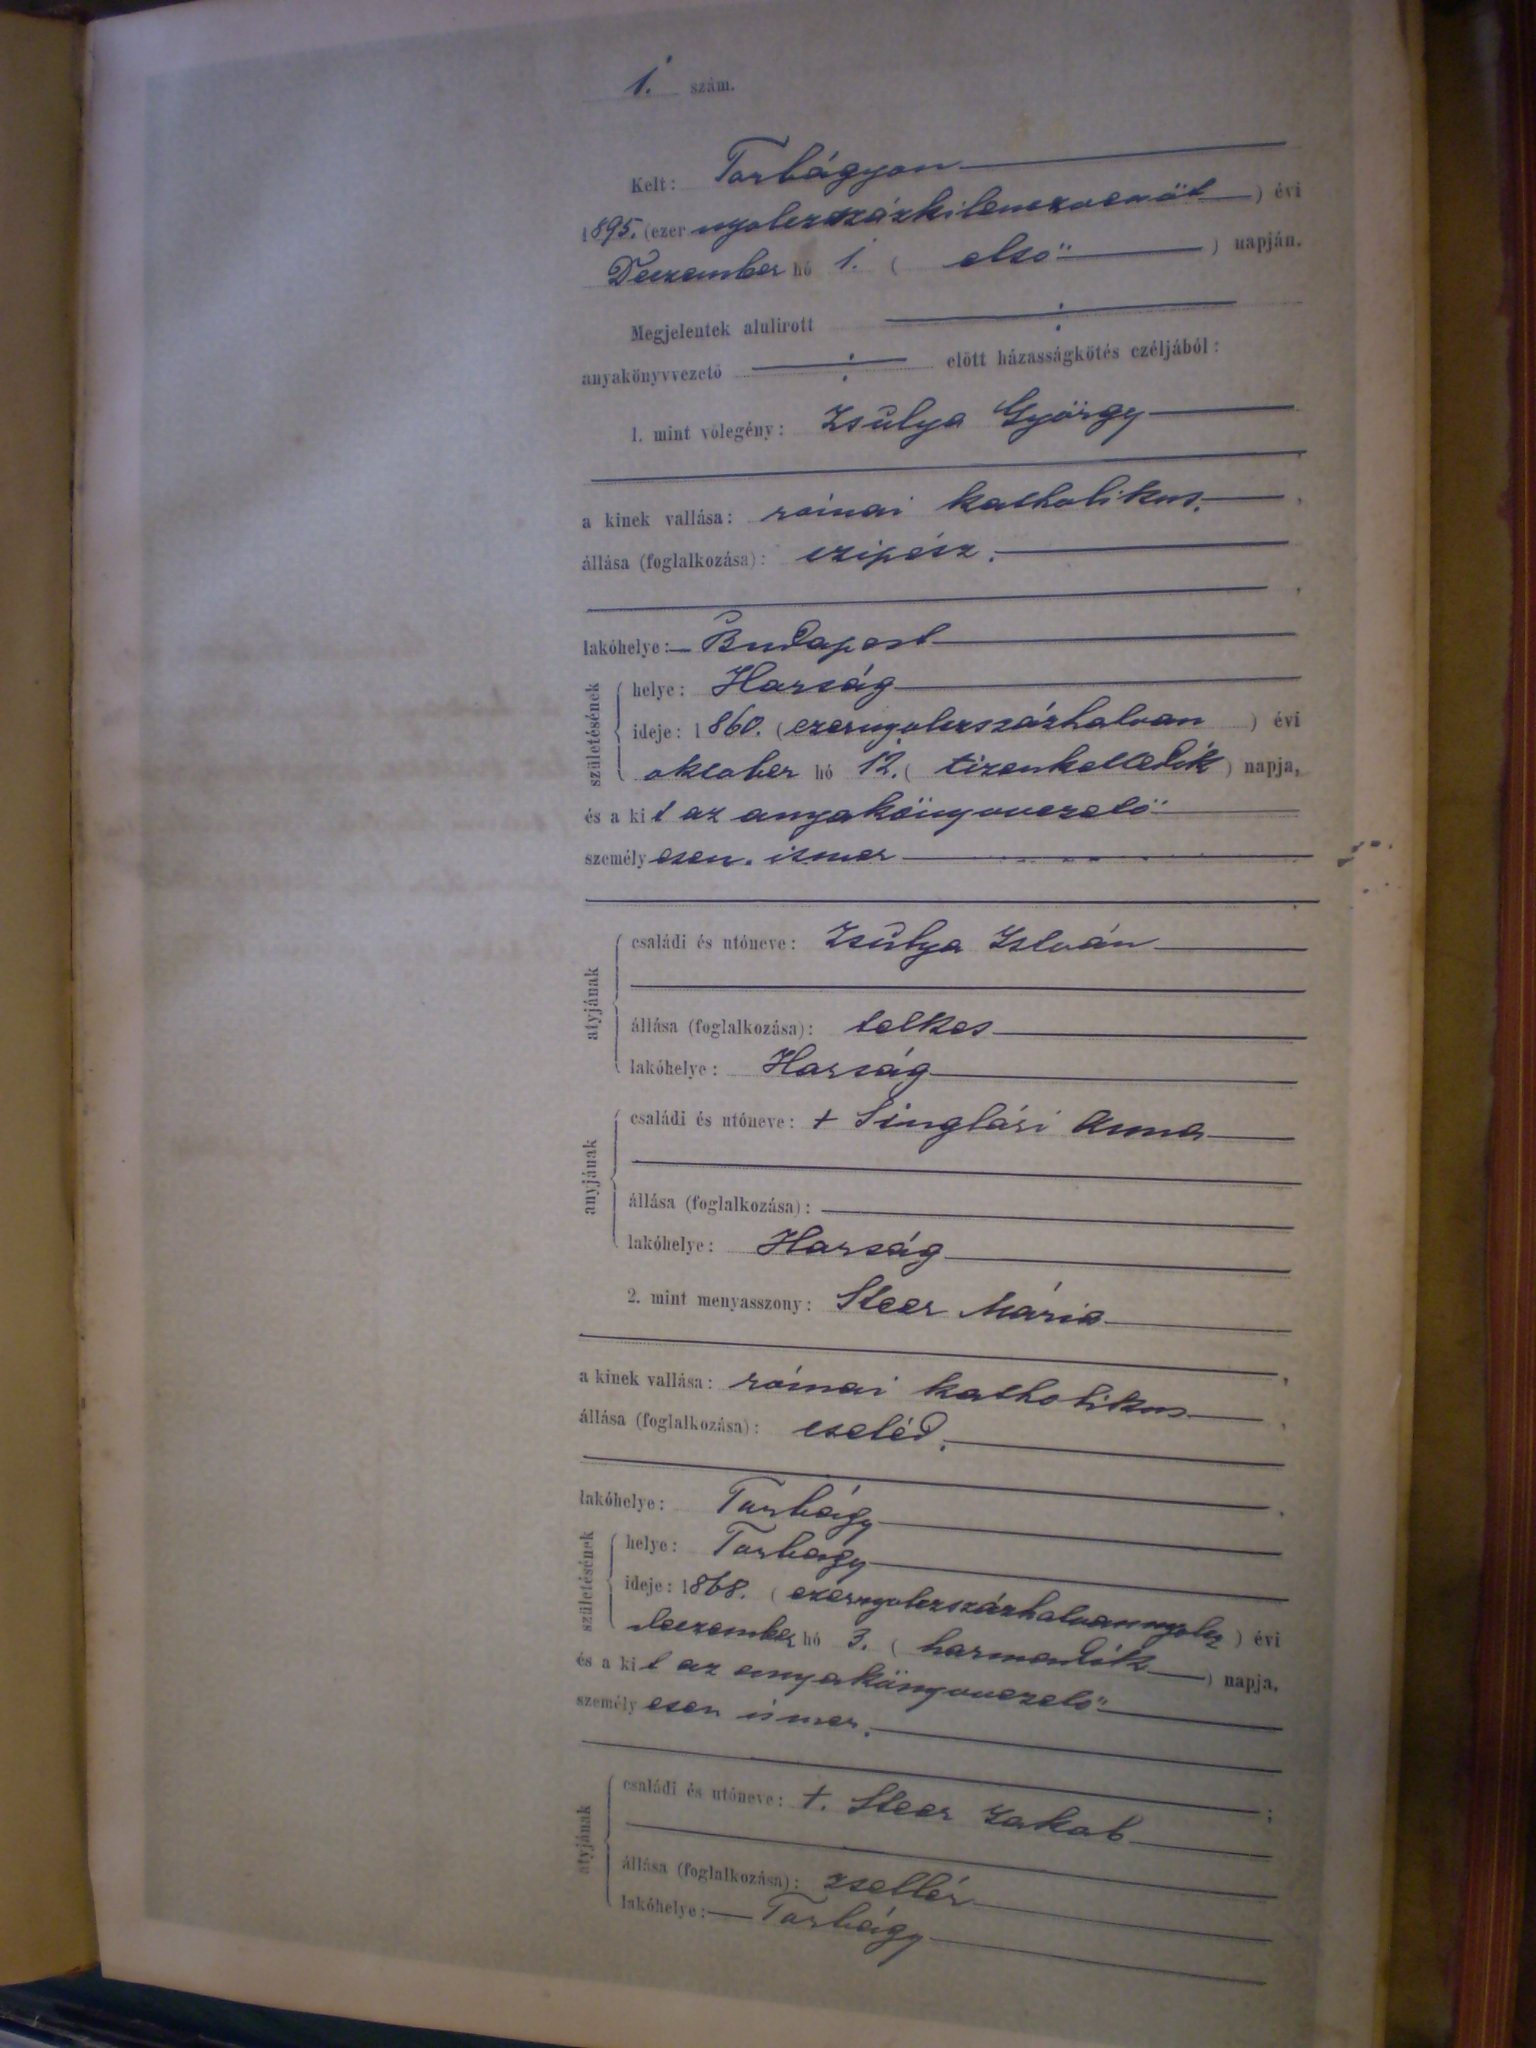 1. szám.
Kelt: Torbágyon
1895. (ezer nyolczszázkilenczvenöt) évi
Deczember hó 1. (első) napján.
Megjelentek alulirott
anyakönyvvezető előtt házasságkötés czéljából:
1. mint vőlegény: Zsulya György
a kinek vallása: római katholikus.
állása (foglalkozása): czipész.
lakóhelye: Budapest
születésének
helye: Harság
ideje: 1860. (ezernyolczszázhatvan) évi
oktober hó 12. (tizenkettedik) napja,
és a kit az anyakönyvvezető
személyesen ismer
atyjának
családi és utóneve: Zsulya István
állása (foglalkozása): telkes
lakóhelye: Harság
anyjának
családi és utóneve: + Singlári Anna
állása (foglalkozása):
lakóhelye: Harság
2. mint menyasszony: Steer Mária
a kinek vallása: római katholikus
állása (foglalkozása): cseléd.
lakóhelye: Torbágy
születésének
helye: Torbágy
ideje: 1868. (ezernyolczszázhatvannyolcz) évi
deczember hó 3. (harmadik) napja,
és a kit az anyakönyvvezető
személyesen ismer.
atyjának
családi és utóneve: +. Steer Jakab
állása (foglalkozása): zsellér
lakóhelye: Torbágy